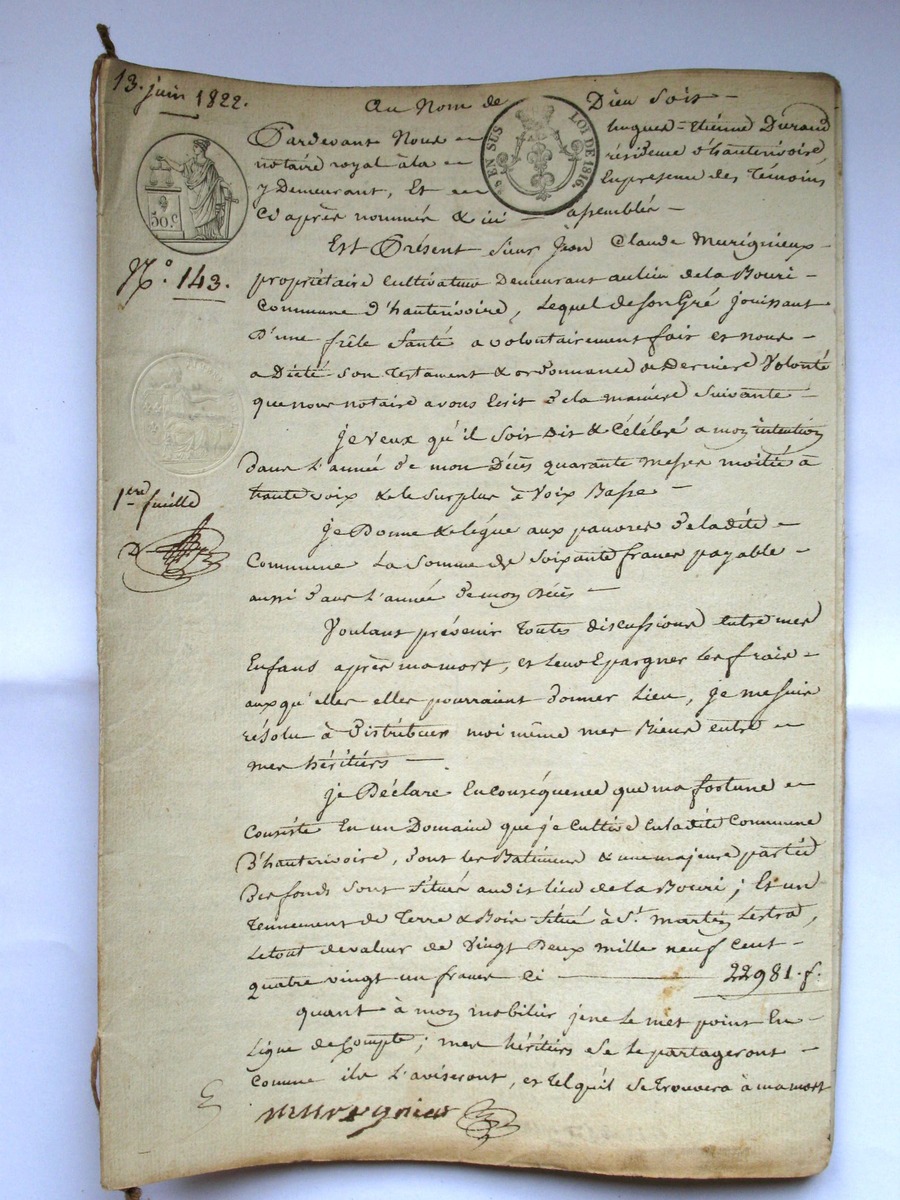 13. juin 1822.
Au Nom de Dieu Soit -
Pardevant Nous hugues - Etienne Durand
notaire royal à la résidence d'hauterivoire,
y Demeurant, Et En présence des Témoins
Ci après nommés & ici assemblés -
EN SUS
LOI DE 1816.
50.C
N.° 143.
Est Présent Sieur Jean Claude Murignieux -
propriétaire Cultivateur Demeurant au lieu de la Bouri -
Commune d'hauterivoire, Lequel de Son Gré jouissant
D'une frêle Santé a volontairement fait et nous -
a Dicté Son Testament & ordonnance de Derniere Volonté
que nous notaire avons Ecrit de la manière Suivante -
je veux qu'il Soit Dit & Célébré a mon intention
dans L'année de mon Décès quarante messes moitié à
haute voix & le Surplus à Voix Basse -
1ere feuille
je Donne & lègue aux pauvres de ladite -
Commune La Somme de Soixante francs payable -
aussi dans L'année de mon Décès -
Voulant prévenir toutes discussions entre mes
Enfans après ma mort, et Leur Epargner les frais -
auxquelles elles pourraient donner Lieu, je me suis
résolu à Distribuer moi même mes Biens entre -
mes héritiers -.
je Déclare En conséquence que ma fortune -
Consiste En un Domaine que je Cultive En ladite Commune
d'hauterivoire, dont les Batimens & une majeure partie
des fonds sont Situés audit lieu de la Bouri ; Et un
Tennement de Terre & Bois Situé à St. martin Lestra,
Le tout de valeur de Vingt Deux mille neuf Cent -
quatre vingt un francs Ci — 22981.f.
quant à mon mobilier je ne le met point En -
Ligne de Compte ; mes héritiers Se le partageront -
Comme ils L'aviseront, et tel qu'il Se trouvera à ma mort